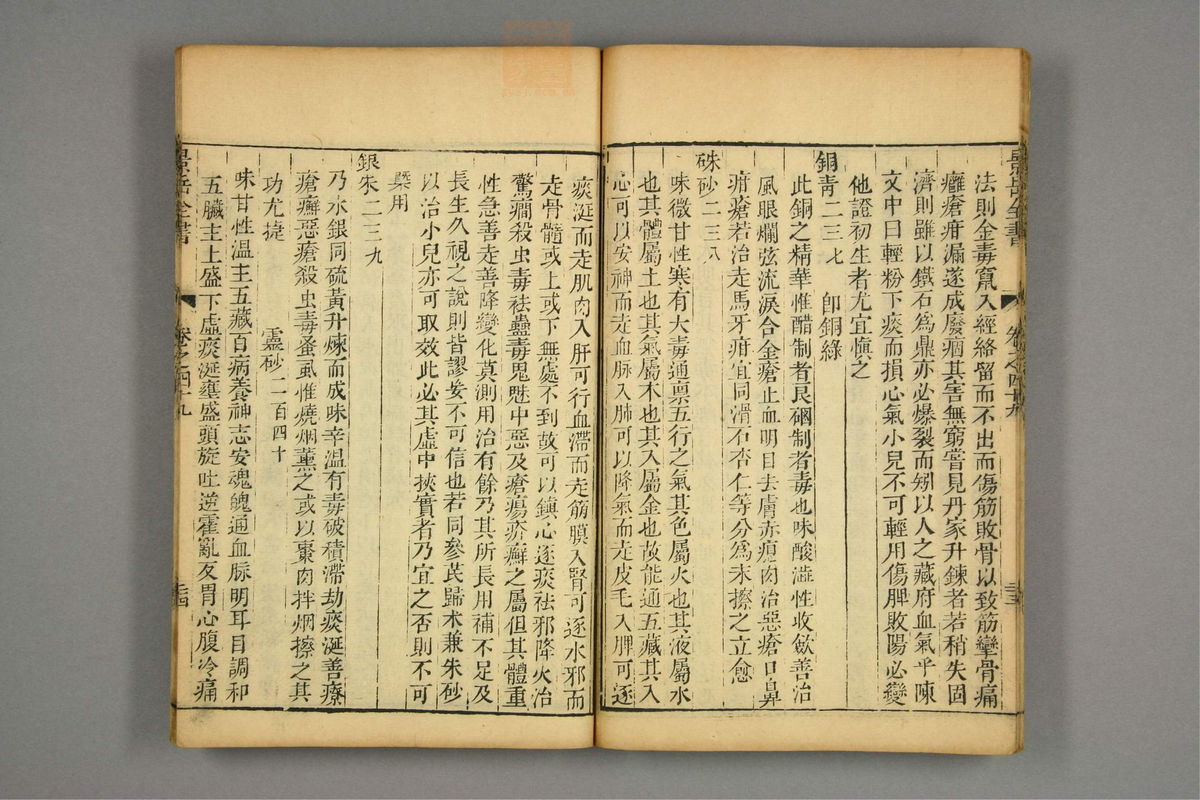 法則金毒竄入經絡留而不出而傷筋敗骨以致筋攣骨痛
癰瘡疳漏遂成廢痼其害無窮嘗見丹家升鍊者若稍失固
濟則雖以鐵石爲鼎亦必爆裂而矧以人之藏府血氣乎陳
文中曰輕粉下痰而損心氣小兒不可輕用傷脾敗陽必變
他證初生者尤宜愼之
銅青二三七 卽銅綠
此銅之精華惟醋制者良硇制者毒也味酸澁性收斂善治
風眼爛弦流淚合金瘡止血明目去膚赤瘜肉治惡瘡口鼻
疳瘡若治走馬牙疳宜同滑石杏仁等分爲末擦之立愈
硃砂二三八
味微甘性寒有大毒通禀五行之氣其色屬火也其液屬水
也其體屬土也其氣屬木也其入屬金也故能通五藏其入
心可以安神而走血脉入肺可以降氣而走皮毛入脾可逐
痰涎而走肌肉入肝可行血滯而走筋膜入腎可逐水邪而
走骨髓或上或下無處不到故可以鎭心逐痰祛邪降火治
驚癇殺虫毒祛蠱毒鬼魅中惡及瘡瘍疥癬之屬但其體重
性急善走善降變化莫測用治有餘乃其所長用補不足及
長生久視之說則皆謬妄不可信也若同參芪歸朮兼朱砂
以治小兒亦可取效此必其虛中挾實者乃宜之否則不可
槩用
銀朱二三九
乃水銀同硫黃升煉而成味辛溫有毒破積滯劫痰涎善療
瘡癬惡瘡殺虫毒蚤虱惟燒烟薰之或以棗肉拌烟擦之其
功尤捷
靈砂二百四十
味甘性溫主五藏百病養神志安魂魄通血脉明耳目調和
五臟主上盛下虛痰涎壅盛頭旋吐逆霍亂反胃心腹冷痛
景岳全書 卷之四十九